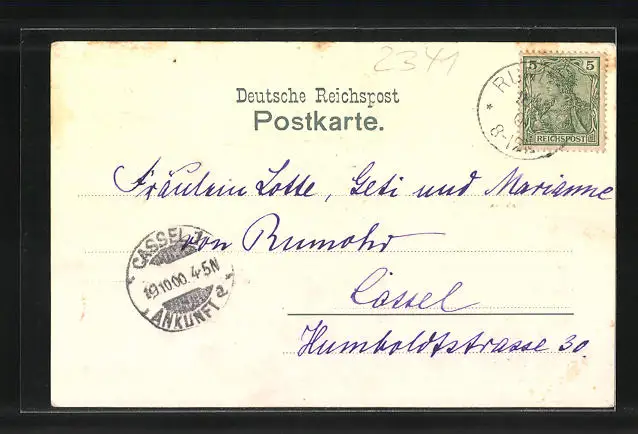 2341
Deutsche Reichspost
Postkarte.
5 5
REICHSPOST
RU
8-12
Fräulein Lotte, Geti und Marianne
von Rumohr
Cassel
Humboldtstrasse 30.
CASSEL 1
19.10.00. 4-5N
ANKUNFT